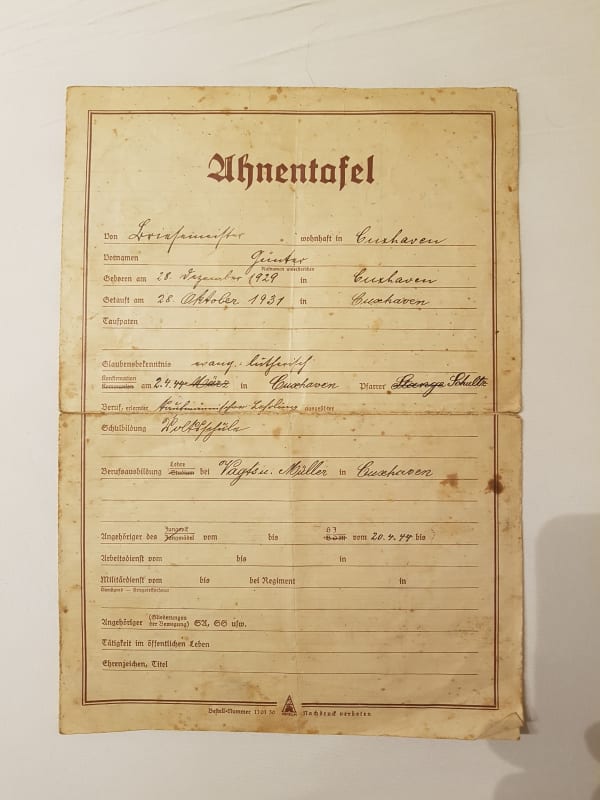 Ahnentafel
Von Briesemeister wohnhaft in Cuxhaven
Vornamen Günter
Rufnamen unterstreichen
Geboren am 28. Dezember 1929 in Cuxhaven
Getauft am 28. Oktober 1931 in Cuxhaven
Taufpaten
Glaubensbekenntnis evang. lutherisch
Konfirmation
Kommunion am 2.4.44 März in Cuxhaven Pfarrer Stange Schultz
Beruf, erlernter Kaufmännischer Lehrling ausgeübter
Schulbildung Volksschule
Berufsausbildung Lehre Studium bei Vagts u. Müller in Cuxhaven
Angehöriger des Jungvolk Jungmädel vom bis HJ BDM vom 20.4.44 bis
Arbeitsdienst vom bis in
Militärdienst vom bis bei Regiment in
Angehöriger (Gliederungen der Bewegung) SA, SS usw.
Tätigkeit im öffentlichen Leben
Ehrenzeichen, Titel
Bestell-Nummer Nachdruck verboten